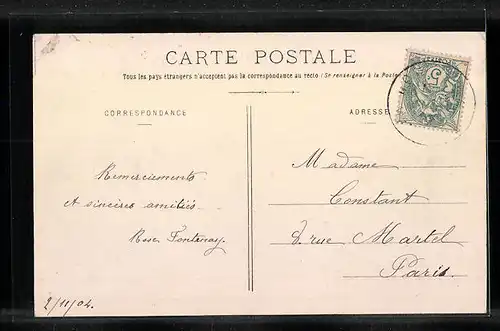 CARTE POSTALE
Tous les pays étrangers n'acceptent pas la correspondance au recto (Se renseigner à la Poste)
CORRESPONDANCE
ADRESSE
Remerciements
et sincères amitiés
Rose Fontenay.
2/11/04.
Madame
Constant
8. rue Martel
Paris.